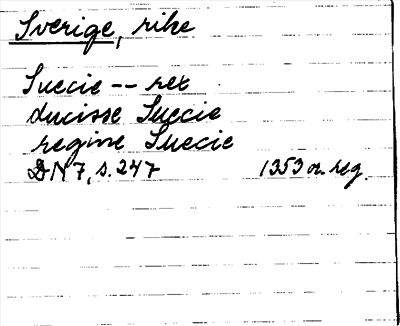 Sverige, rike
Suecie -- rex
ducisse Suecie
regine Suecie
DN 7, s. 247 1353 or. reg.